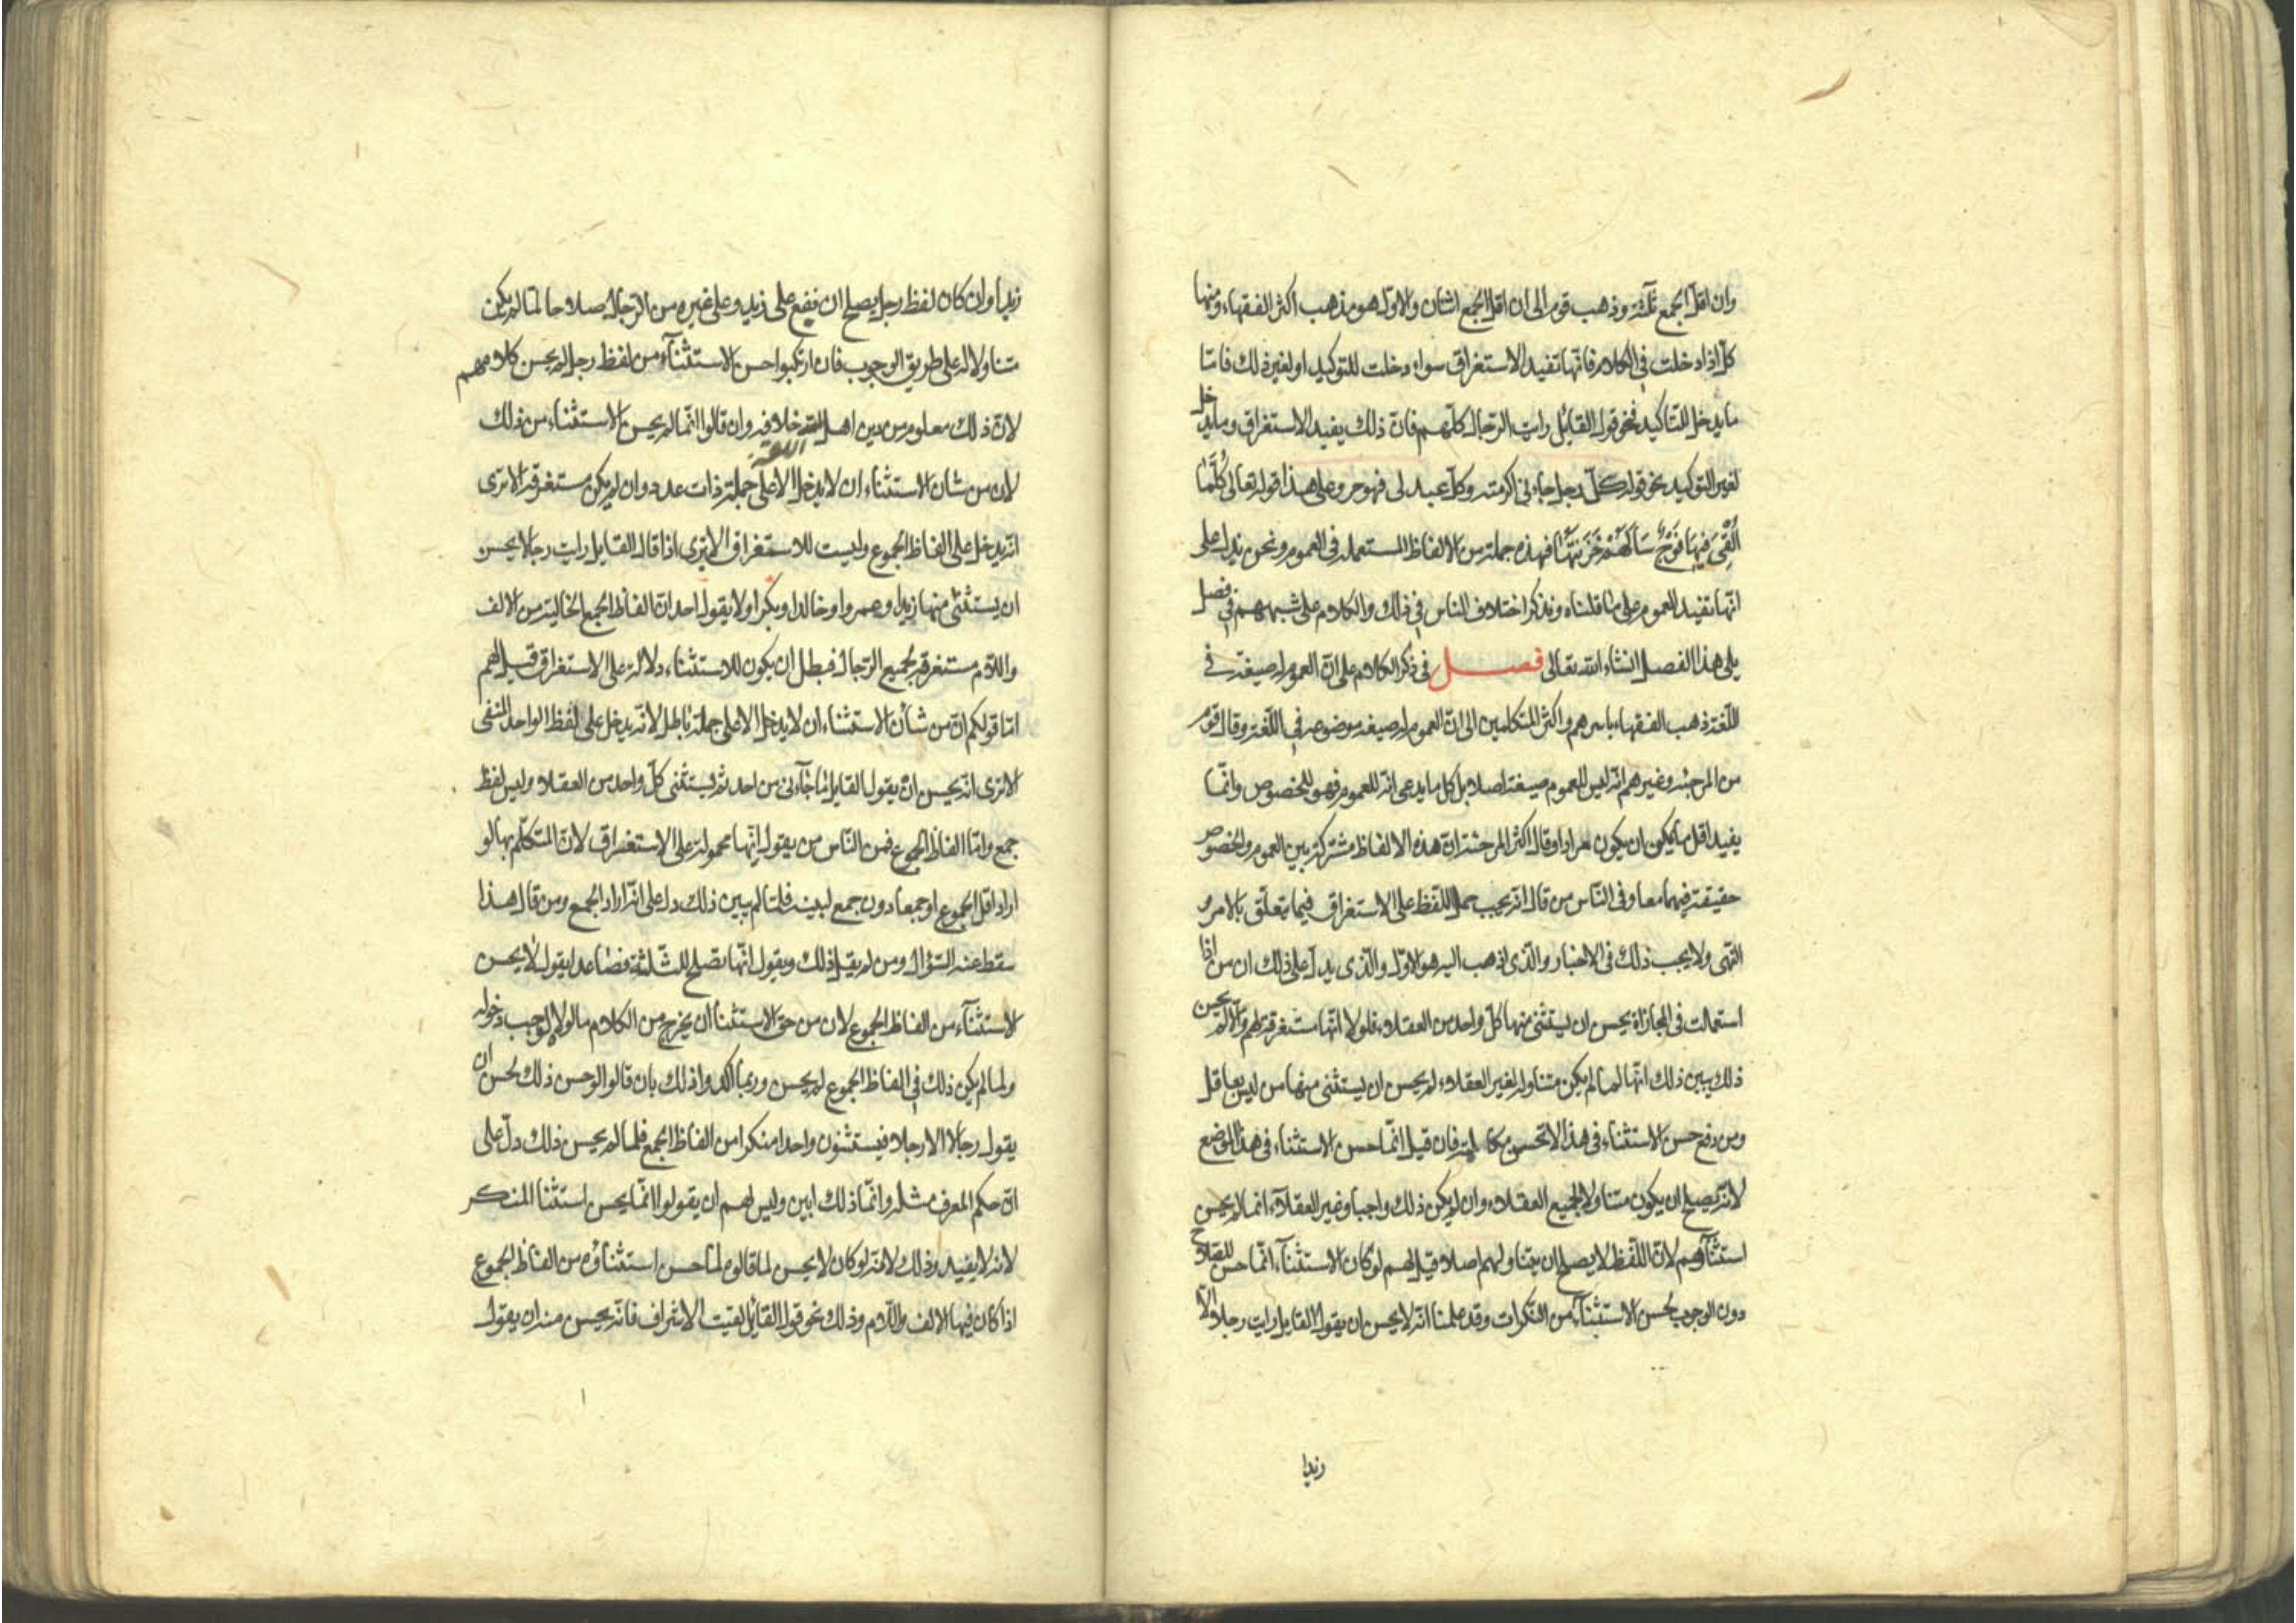 وان اقل الجمع ثلثة وذهب قوم الى ان اقل الجمع اثنان والاول هو مذهب اكثر الفقهاء ومنها
كل اذا دخلت في الكلام فانها تفيد الاستغراق سواء دخلت للتوكيد او لغير ذلك فاما
ما يدخل للتاكيد فنحو قول القايل رايت الرجال كلهم فان ذلك يفيد الاستغراق وما يدخل
لغير التوكيد نحو قوله كل رجل جاءني اكرمته وكل عبد لى فهو حر وعلى هذا قوله تعالى كُلَّمَا
اُلْقِىَ فِيهَا فَوْجٌ سَأَلَهُمْ خَزَنَتُهَا فهذه جملة من الالفاظ المستعملة فى العموم ونحن ندل على
انها تفيد العموم على ما قلناه ونذكر اختلاف الناس في ذلك والكلام على شبههم في فصل
يلى هذا الفصل انشاء الله تعالى فصل في ذكر الكلام على ان العموم له صيغة في
اللغة ذهب الفقهاء باسرهم واكثر المتكلمين الى ان العموم له صيغة موضوعه في اللغة وقال قوم
من المرجئه وغيرهم انه ليس للعموم صيغة اصلا بل كل ما يدعى انه للعموم فهو للخصوص وانما
يفيد اقل ما يمكن ان يكون مرادا وقال اكثر المرجئة ان هذه الالفاظ مشتركة بين العموم والخصوص
حقيقة فيهما معا وفى الناس من قال انه يجب حمل اللفظ على الاستغراق فيما يتعلق بالامر و
النهى ولا يجب ذلك فى الاخبار والذى اذهب اليه هو الاول والذى يدل على ذلك ان من اذا
استعملت فى المجازاة يحسن ان يستثنى منها كل واحد من العقلاء فلولا انها مستغرقة لهم والا لم يحسن
ذلك يبين ذلك انها لما لم يكن متناولة لغير العقلاء لم يحسن ان يستثنى منها من ليس بعاقل
ومن دفع حسن الاستثناء فى هذا لا تحسن مكالمته فان قيل انما حسن الاستثناء فى هذا الموضع
لانه يصلح ان يكون متناولا لجميع العقلاء وان لم يكن ذلك واجبا وغير العقلاء انما لم يحسن
استثناؤهم لان اللفظ لا يصلح ان يتناولهم اصلا قيل لهم لو كان الاستثناء انما حسن للصلاح
دون الوجوب لحسن الاستثناء من النكرات وقد علمنا انه لا يحسن ان يقول القايل رايت رجلا الا
زيدا
زيدا وان كان لفظ رجل يصلح ان يقع على زيد وعلى غيره من الرجال صلاحا لما لم يكن
متناولا له على طريق الوجوب فان ارتكبوا حسن الاستثناء من لفظ رجل لم يحسن كلامهم
لان ذلك معلوم من دين اهل اللغة خلافه وان قالوا انما لم يحسن الاستثناء من ذلك
لان من شان الاستثناء ان لا يدخل الا على جملة ذات عدد وان لم يكن مستغرقة الا ترى
انه يدخل على الفاظ الجموع وليست للاستغراق الا ترى اذا قال القايل رايت رجالا يحسن
ان يستثنى منها زيدا وعمروا وخالدا وبكرا ولا يقول احد ان الفاظ الجمع الخالية من الالف
واللام مستغرقة لجميع الرجال فبطل ان يكون للاستثناء دلالة على الاستغراق قيل لهم
اما قولكم ان من شأن الاستثناء ان لا يدخل الا على جملة باطل لانه يدخل على لفظ الواحد المنفى
الا ترى انه يحسن ان يقول القايل ما جاءنى من احد ثم يستثنى كل واحد من العقلاء وليس لفظ
جمع واما الفاظ الجموع فمن الناس من يقول انها محمولة على الاستغراق لان المتكلم بها لو
اراد اقل الجموع او جمعا دون جمع لبينه فلما لم يبين ذلك دل على انه اراد الجمع ومن قال هذا
سقط عنه السؤال ومن لم يقل ذلك ويقول انها تصلح للثلثة فصاعدا يقول لا يحسن
الاستثناء من الفاظ الجموع لان من حق الاستثنا أن يخرج من الكلام ما لولاه لوجب دخوله
ولما لم يكن ذلك في الفاظ الجموع لم يحسن وربما اكدوا ذلك بان قالوا لو حسن ذلك لحسن ان
يقول رجالا الا رجلا فيستثنون واحدا منكرا من الفاظ الجمع فلما لم يحسن ذلك دل على
ان حكم المعرف مثله وانما ذلك ابين وليس لهم ان يقولوا انما يحسن استثنا المنكر
لانه لا يفيد وذلك لانه لو كان لا يحسن لما قالوه لما حسن استثناؤه من الفاظ الجموع
اذا كان فيها الالف واللام وذلك نحو قول القائل لقيت الاشراف فانه يحسن منه ان يقول